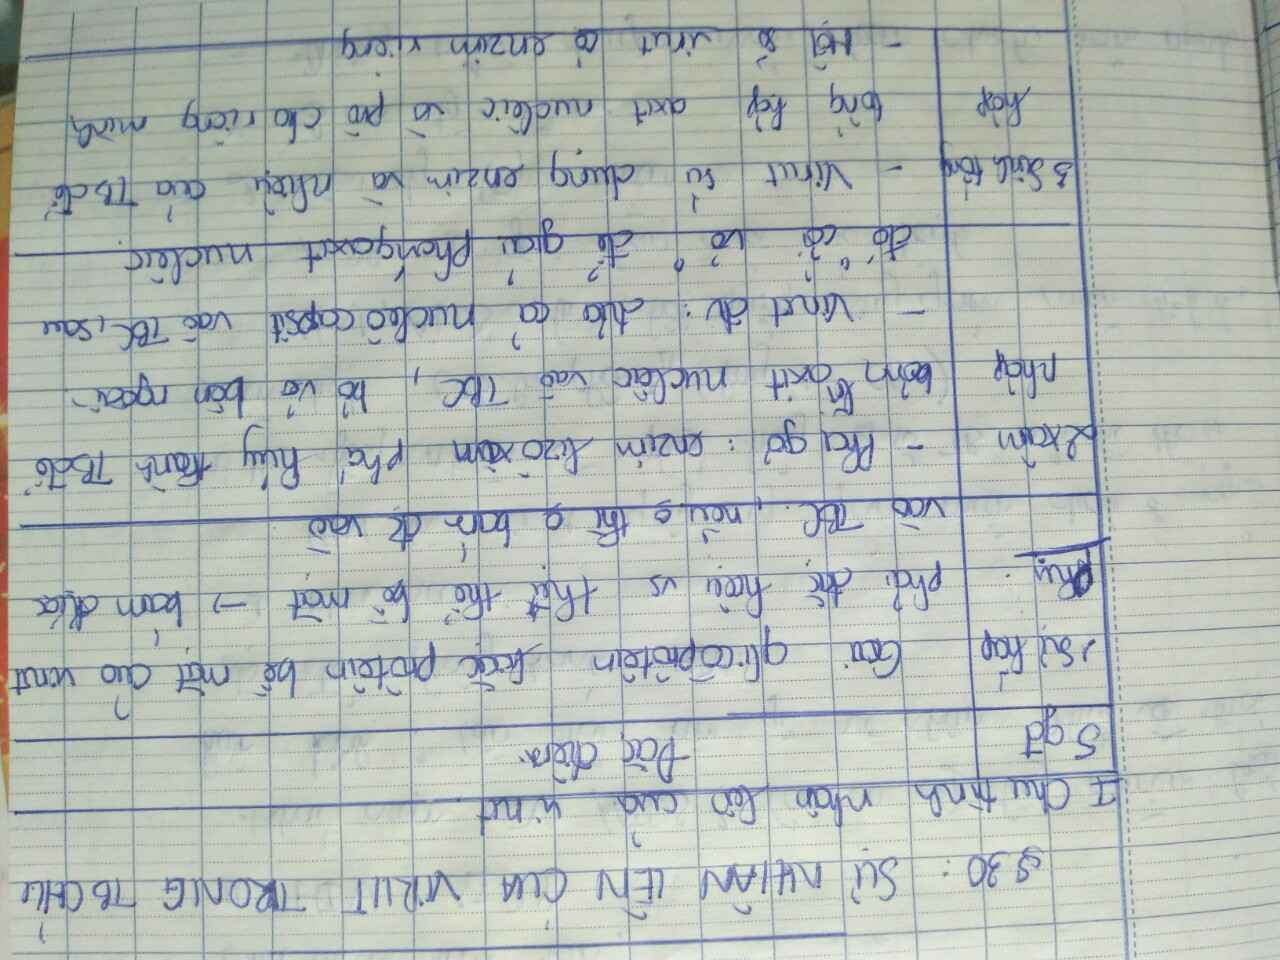 §30: SỰ NHÂN LÊN CỦA VIRUT TRONG TB CHỦ
I Chu trình nhân lên của virut
5 gđ
Đặc điểm
1, Sự hấp phụ
Gai glicôprôtêin hoặc prôtêin bề mặt của virut
phải đặc hiệu vs thụ thể bề mặt → bám đc
vào TBC, nếu o thì o bám đc vào
2 xâm nhập
- Phagơ: enzim lizôxôm phá hủy thành TB để
bơm axit nuclêic vào TBC, bỏ vỏ bên ngoài
- Virut đv: đưa cả nuclêôcapsit vào TBC, sau
đó "cởi vỏ" để giải phóng axit nuclêic
3 Sinh tổng hợp
- Virut sử dụng enzim và nhliệu của TB để
tổng hợp axit nuclêic và prô cho riêng mình
- Một số virut có enzim riêng